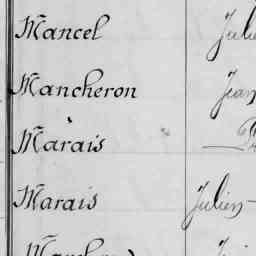 Mancel
Mancheron Jean
Marais
Marais Julien